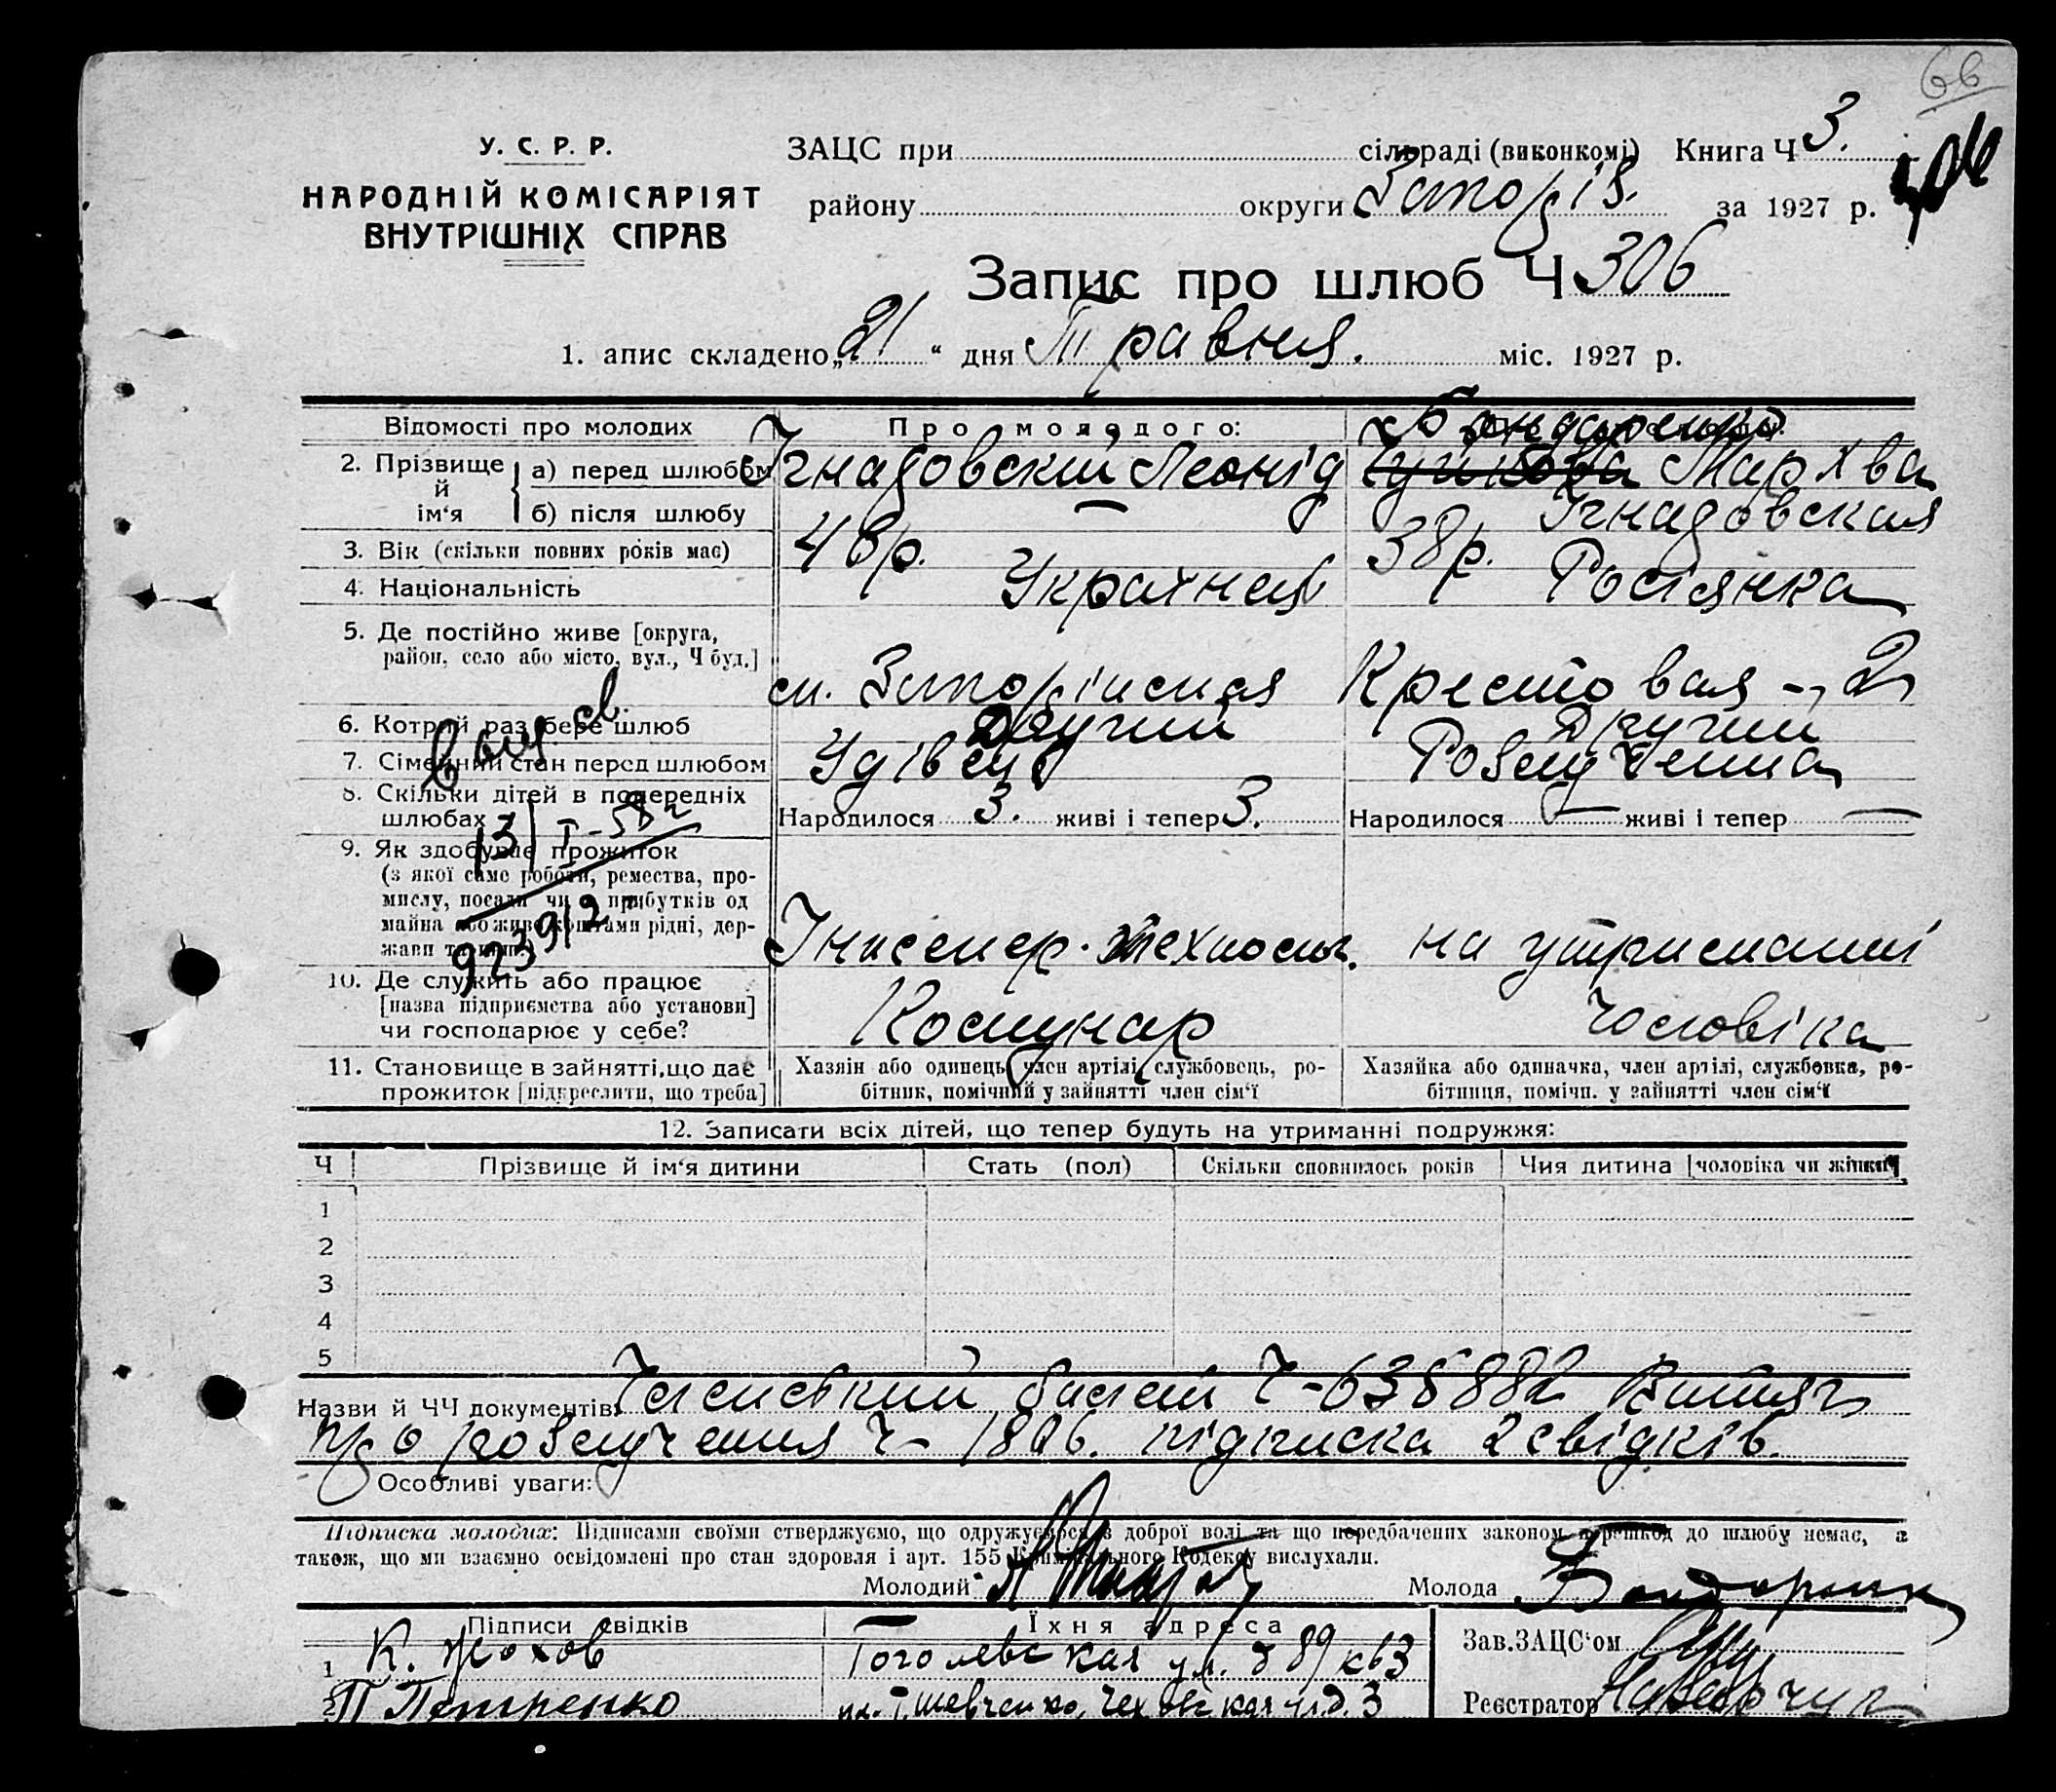 66
У. С. Р. Р.
НАРОДНІЙ КОМІСАРІЯТ
ВНУТРІШНІХ СПРАВ
ЗАЦС при сільраді (виконкомі) Книга Ч 3.
району округи Запоріз. за 1927 р.
Запис про шлюб Ч 306
1. апис складено „21“ дня Травня. міс. 1927 р.
Відомості про молодих
Про молодого:
Бондаренко
2. Прізвище й ім'я
а) перед шлюбом Ігнатовский Леонід Мархва
б) після шлюбу Ігнатовская
3. Вік (скільки повних років має) 48р. 38р.
4. Національність Українець Росіянка
5. Де постійно живе [округа, район, село або місто, вул., Ч буд.]
м. Запоріжжя Крестовая - 2
6. Котрий раз бере шлюб Другий Другий
7. Сімейний стан перед шлюбом Удівець Розлученна
8. Скільки дітей в попередніх шлюбах
Народилося 3. живі і тепер 3. Народилося — живі і тепер —
9. Як здобуває прожиток
(з якої саме роботи, ремества, про-
мислу, посади чи з прибутків од
майна або живе коштами рідні, дер-
жави та інш.)
Інженер-технолог. на утриманні
чоловіка
10. Де служить або працює
[назва підприємства або установи]
чи господарює у себе?
Комунар
11. Становище в зайнятті, що дає
прожиток [підкреслити, що треба]
Хазяін або одинець, член артілі, службовець, ро-
бітник, помічний у зайнятті член сім'ї
Хазяйка або одиначка, член артілі, службовка, ро-
бітниця, помічн. у зайнятті член сім'ї
12. Записати всіх дітей, що тепер будуть на утриманні подружжя:
Ч Прізвище й ім'я дитини Стать (пол) Скільки сповнилось років Чия дитина [чоловіка чи жінки]
1
2
3
4
5
Назви й ЧЧ документів: Членський билет Ч-638882 Витяг
про розлучення Ч- 1826. підписка 2 свідків.
Особливі уваги:
Підписка молодих: Підписами своїми стверджуємо, що одружуємося з доброї волі та що передбачених законом перешкод до шлюбу немає, а
також, що ми взаємно освідомлені про стан здоровля і арт. 155 Кримінального Кодексу вислухали.
Молодий Молода Бондаренко
Підписи свідків Їхня адреса
1 К. Жохов Гоголевская ул. д 89 кв 3
2 П Петренко
Зав.ЗАЦС'ом
Реєстратор